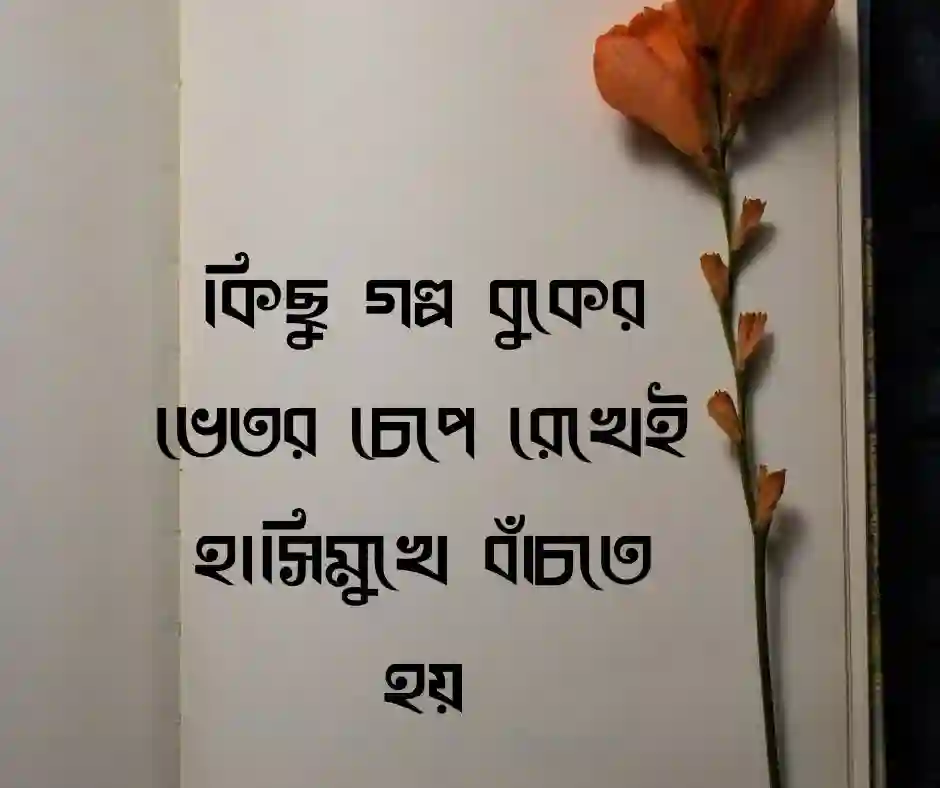 কিছু গল্প বুকের
ভেতর চেপে রেখেই
হাসিমুখে বাঁচতে
হয়